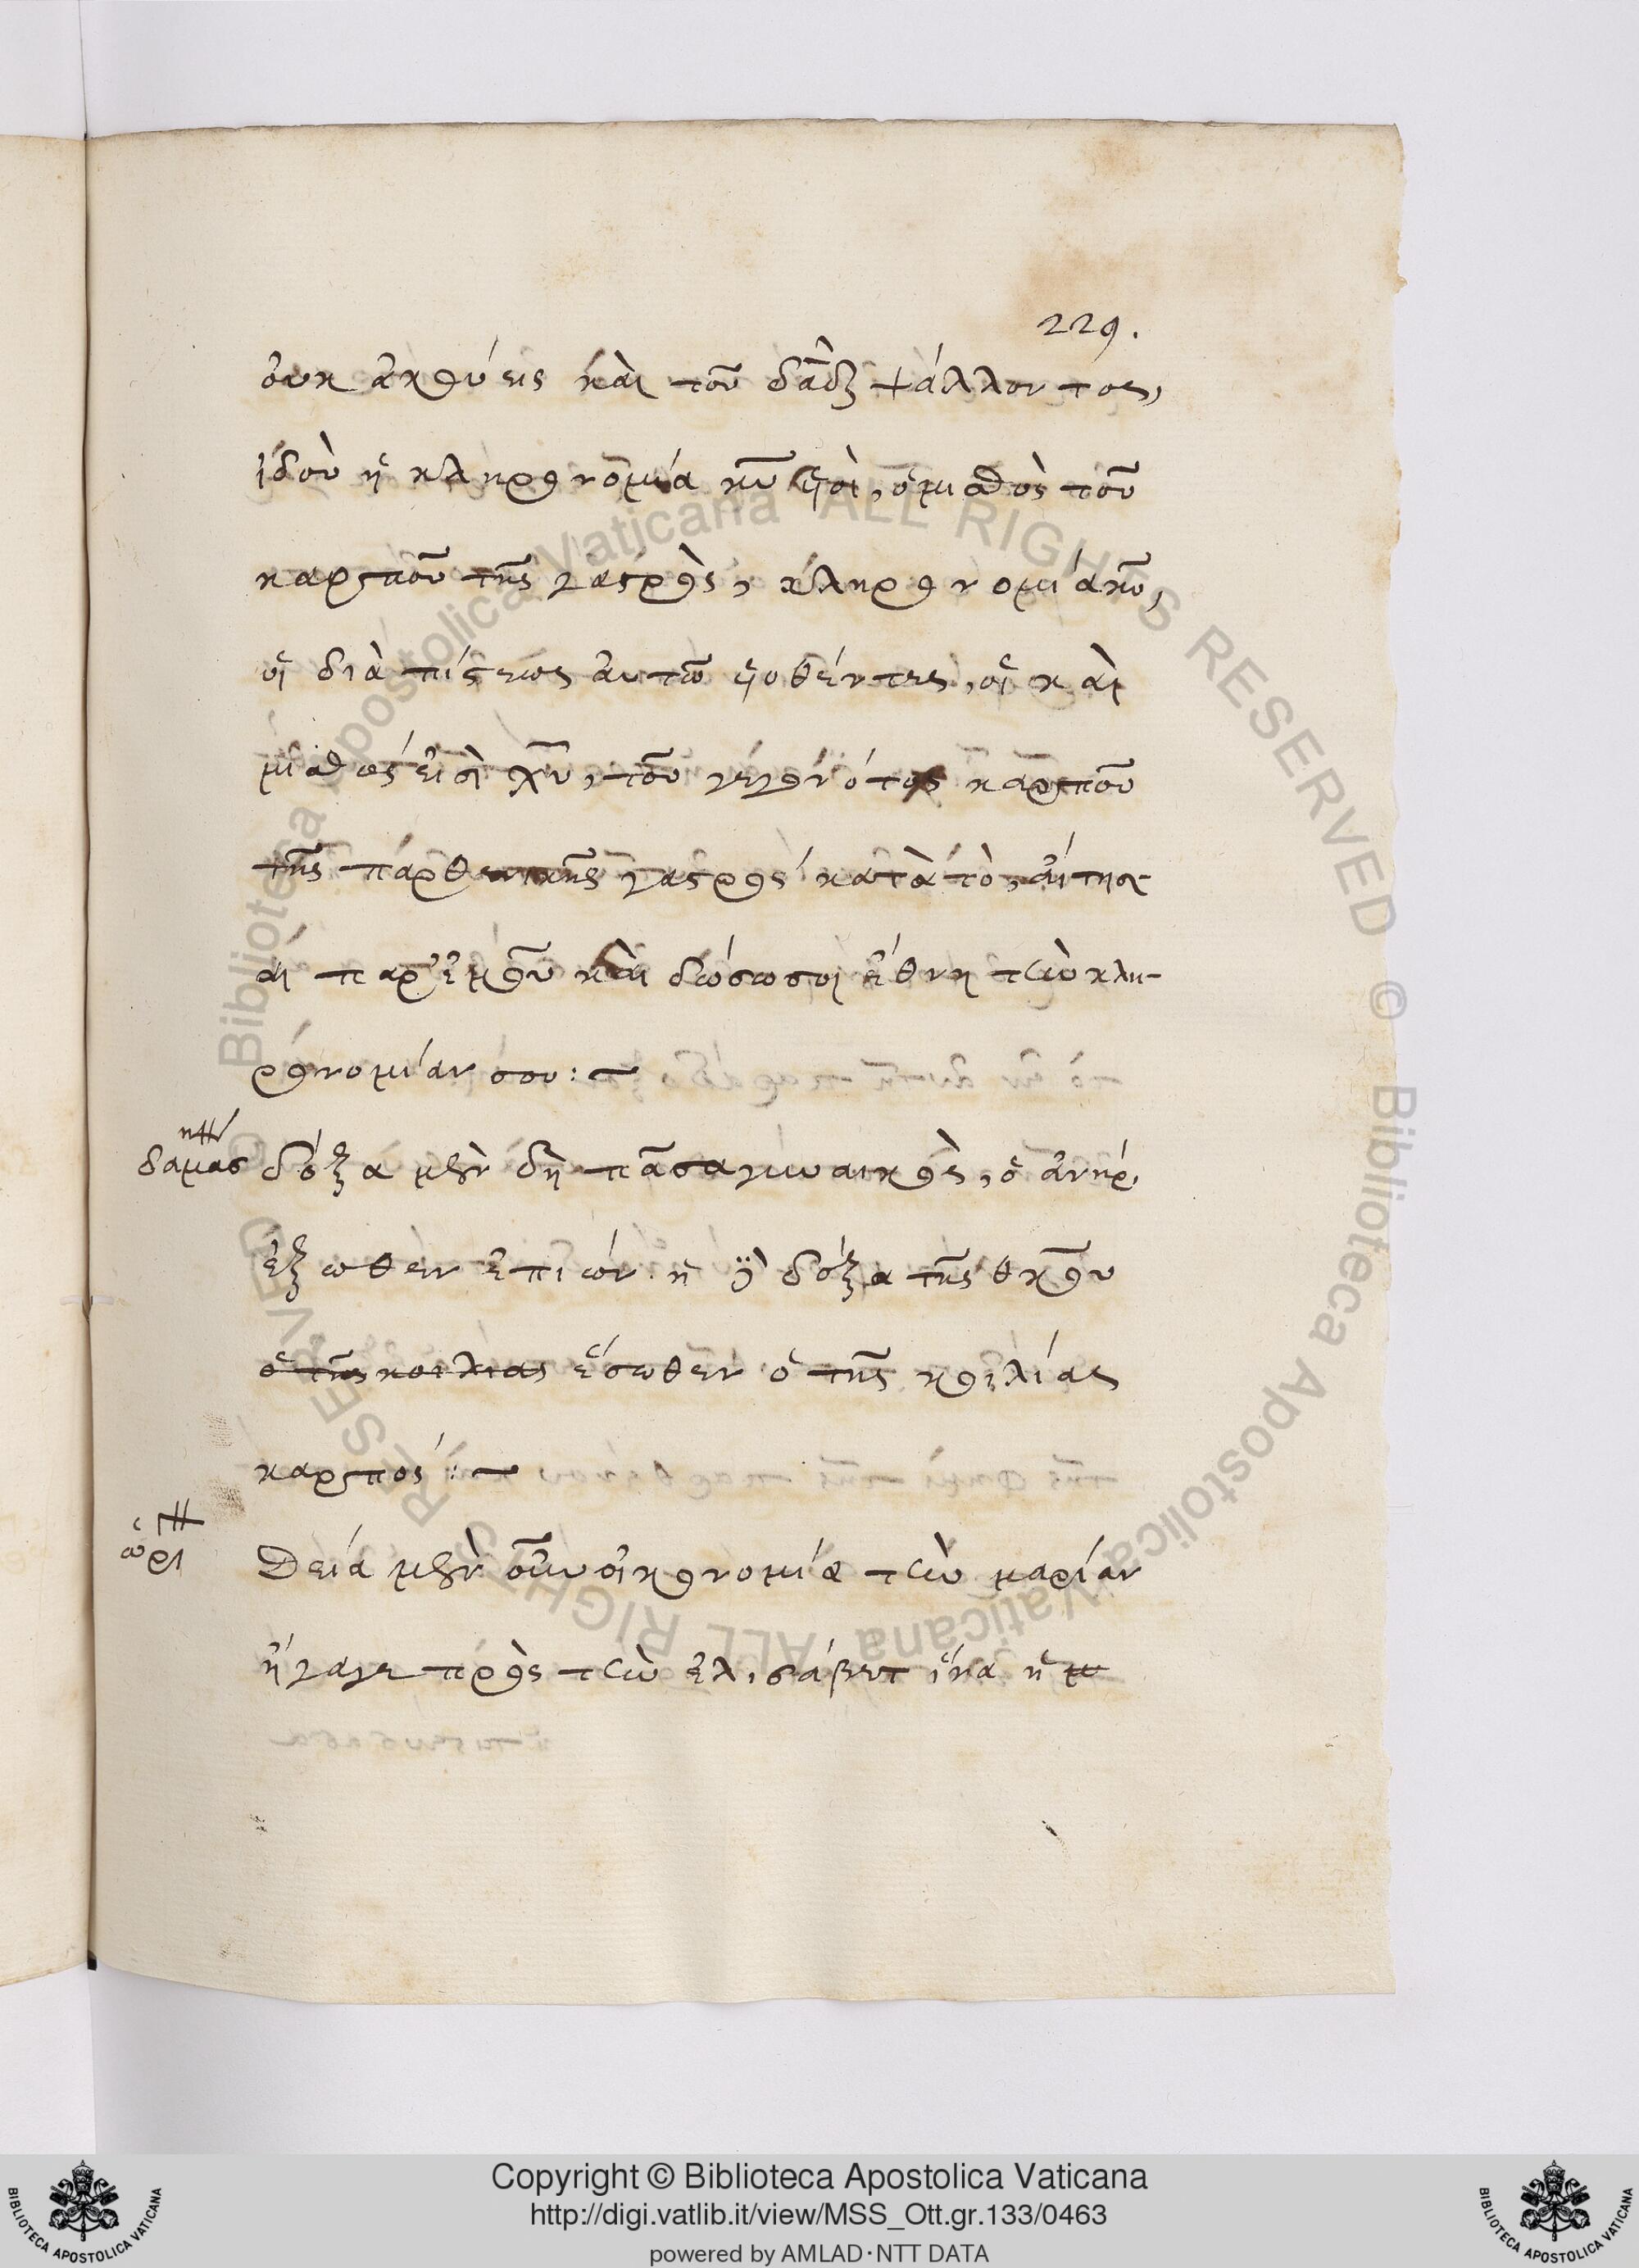 229.
ὀυκ ἀκούεις καὶ τοῦ δᾱδ ψάλλοντος,
ἰδοὺ ἡ κληρονομία κ̅υ̅ υἱοὶ, ὁ μισθὸς τοῦ
καρποῦ τῆς γαστρὸς, κληρονομία κ̅υ̅,
οἱ διὰ πίστεως ἀυτῶ υἱοθέντες, οἱ καὶ
μισθός εἰσὶ χ̅υ̅, τοῦ γεγονότος καρποῦ
τῆς παρθενικῆς γαστρός κατὰ τὸ, ἀίτησ-
αι παρ' ἐμοῦ καὶ δώσω σοι ἔθνη τὴν κλη-
ρονομίαν σου:~
δαμασκη δόξα μὲν δὴ πᾶσα γυναικὸς, ὁ ἀνήρ,
ἔξωθεν ἐπιών. ἡ δὲ δόξα τῆς θ̅κ̅ου
ὁ τῆς κοιλιας ἔσωθεν ὁ τῆς κοιλίας
καρπός:~
ὠρι Θεία μὲν οὖν οἰκονομία τὴν μαρίαν
ἤγαγε πρὸς τὴν ἐλισάβετ ἵνα ἡ μ
Copyright © Biblioteca Apostolica Vaticana
http://digi.vatlib.it/view/MSS_Ott.gr.133/0463
powered by AMLAD·NTT DATA
BIBLIOTECA APOSTOLICA VATICANA
BIBLIOTECA APOSTOLICA VATICANA
© Biblioteca Apostolica Vaticana ALL RIGHTS RESERVED © Biblioteca Apostolica Vaticana ALL RIGHTS RESERVED